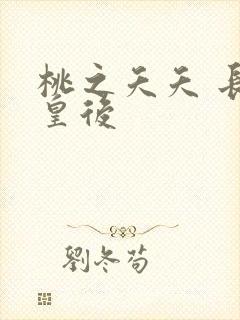 桃之夭夭 長
皇後
劉冬苟